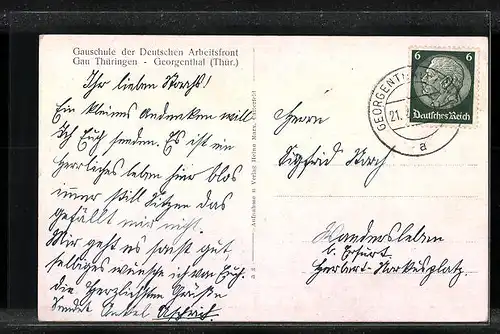 Gauschule der Deutschen Arbeitsfront
Gau Thüringen - Georgenthal (Thür.)
Ihr lieben Storchs!
Ein kleines Andenken will
ich Euch senden. Es ist ein
herrliches leben hier blos
immer still sitzen das
gefällt mir nicht.
Mir geht es sonst gut,
selbiges wünsche ich von Euch.
die herzlichsten Grüße
sendet Onkel
Aufnahme u. Verlag
GEORGENTH
21.
a
6 6
Deutsches Reich
Herrn
Sigfried Storch
Wandersleben
b. Erfurt
Herbert-Norkusplatz.